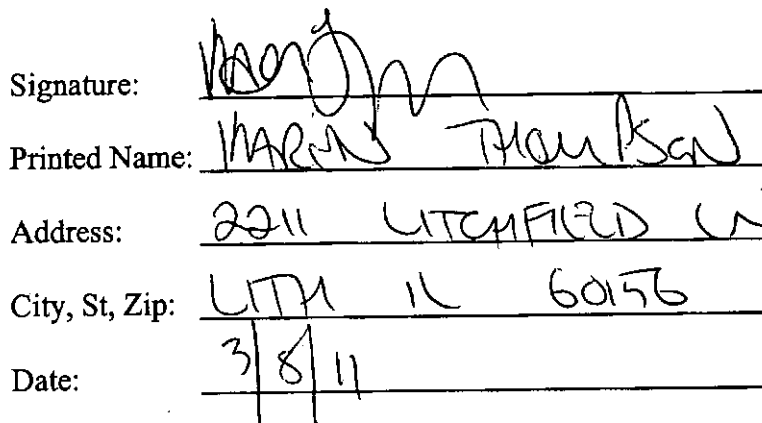 Signature:
Printed Name: KARIN THOMPSON
Address: 2211 LITCHFIELD LN
City, St, Zip: LITH IL 60156
Date: 3/8/11